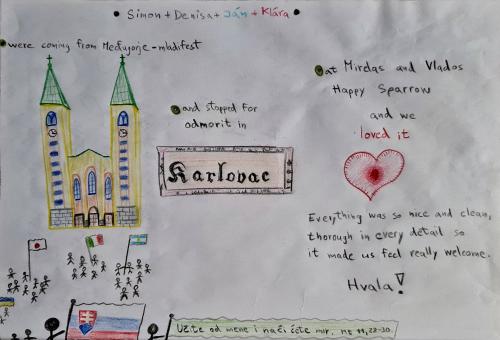 Simon + Denisa + Ján + Klára
were coming from Međugorje - mladifest
and stopped for
odmorit in
Karlovac
at Mirelas and Vlados
Happy Sparrow
and we
loved it
Everything was so nice and clean,
thorough in every detail so
it made us feel really welcome.
Hvala!
Učite od mene i naći ćete mir. Mt 11,28-30.